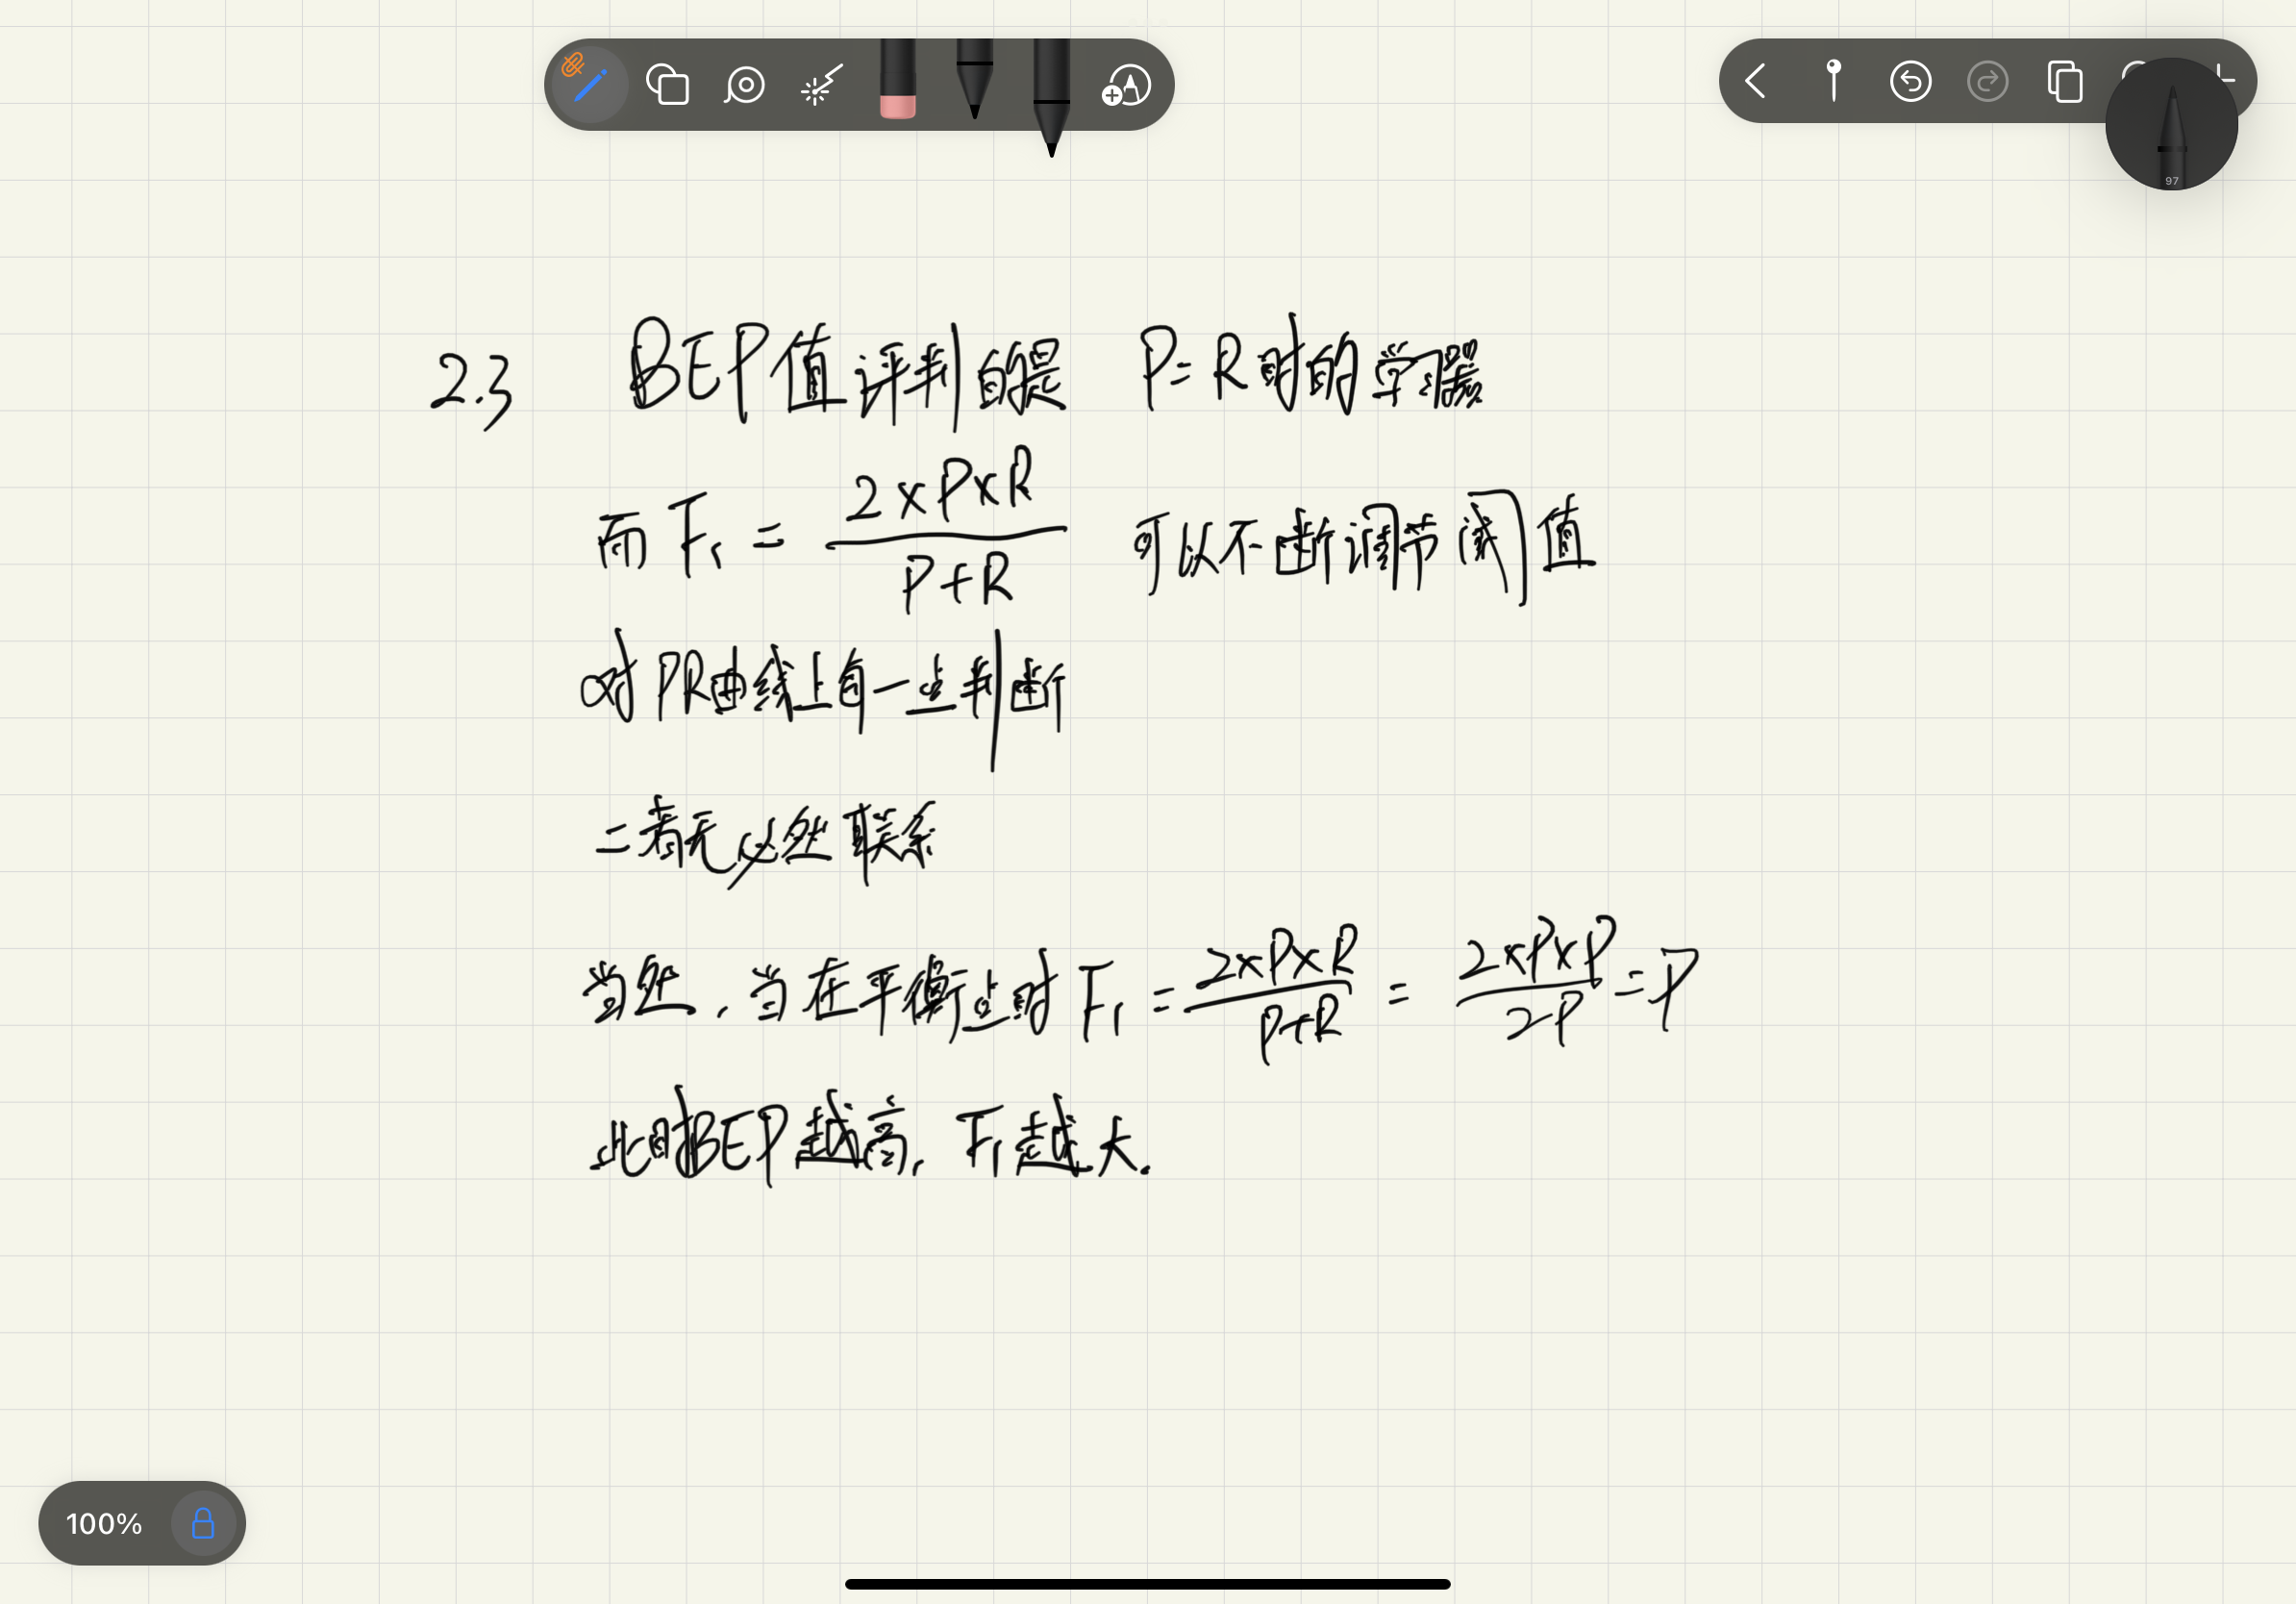 97
2.3 BEP值评判的是 P=R时的学习器
而 F₁ = (2×P×R)/(P+R) 可以不断调节阈值
对PR曲线上每一点判断
二者无必然联系
当然,当在平衡点时 F₁ = (2×P×R)/(P+R) = (2×P×P)/(2P) = P
此时BEP越高,F₁越大.
100%